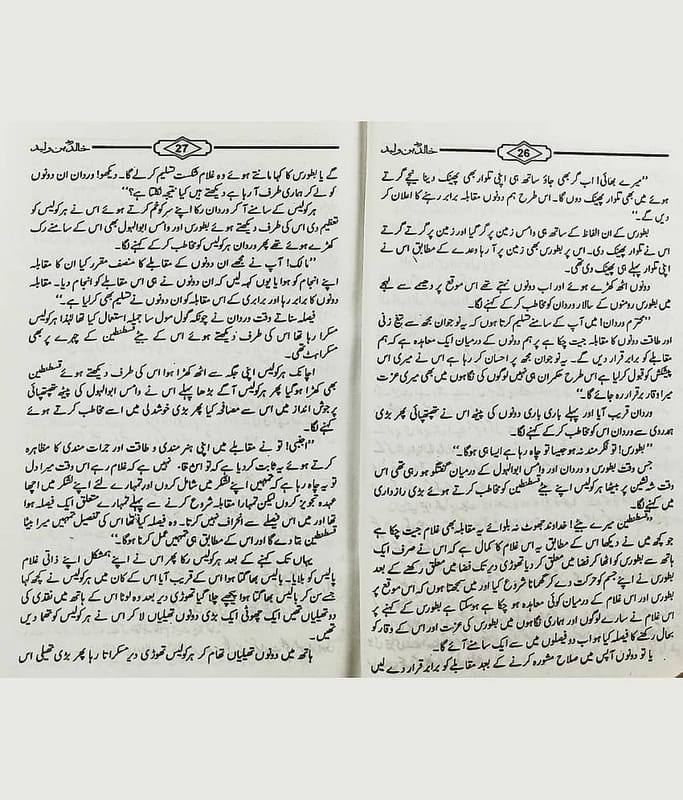 خالد بن ولید
26
”میرے بھائی! اب گر بھی جاؤ ساتھ ہی اپنی تلوار بھی پھینک دینا نیچے گرتے
ہوئے میں بھی تلوار پھینک دوں گا۔ اس طرح ہم دونوں مقابلہ برابر رہنے کا اعلان کر
دیں گے۔“
بطورس کے ان الفاظ کے ساتھ ہی وامس زمین پر گر گیا اور زمین پر گرتے گرتے
اس نے تلوار پھینک دی۔ اس پر بطورس بھی زمین پر آ رہا وعدے کے مطابق اس نے
اپنی تلوار پہلے ہی پھینک دی تھی۔
دونوں اٹھ کھڑے ہوئے اور اب دونوں نہتے تھے اس موقع پر دھمے سے لہجے
میں بطورس رومنوں کے سالار وردان کو مخاطب کر کے کہنے لگا۔
”محترم وردان! میں آپ کے سامنے تسلیم کرتا ہوں کہ یہ نوجوان مجھ سے تیغ زنی
اور طاقت دونوں کا مقابلہ جیت چکا ہے پر ہم دونوں کے درمیان ایک معاہدہ ہے کہ ہم
مقابلے کو برابر قرار دیں گے۔ یہ نوجوان مجھ پر احسان کر رہا ہے اس نے میری اس
پیشکش کو قبول کر لیا ہے اس طرح حکمران ہی نہیں لوگوں کی نگاہوں میں بھی میری عزت
میرا وقار برقرار رہ جائے گا۔“
وردان قریب آیا اور پہلے باری باری دونوں کی پیٹھ اس نے تھپتھپائی پھر بڑی
ہمدردی سے وردان اس کو مخاطب کر کے کہنے لگا۔
”بطورس! تو فکرمند نہ ہو جیسا تو چاہ رہا ہے ایسا ہی ہوگا۔“
جس وقت بطورس و وردان اور وامس ابوالہول کے درمیان گفتگو ہو رہی تھی اس
وقت شہ نشین پر بیٹھا ہرکولیس اپنے بیٹے قسطنطین کو مخاطب کرتے ہوئے بڑی رازداری
میں کہنے لگا۔
”قسطنطین میرے بیٹے! خداوند جھوٹ نہ بلوائے یہ مقابلہ بھی غلام جیت چکا ہے
جو کچھ میں نے دیکھا اس کے مطابق یہ اس غلام کا کمال ہے کہ اس نے صرف ایک
ہاتھ سے بطورس کو اٹھا کر فضا میں معلق کر دیا تھوڑی دیر تک فضا میں معلق رکھنے کے بعد
بطورس نے اپنے جسم کو حرکت دے کر گھمانا شروع کیا اور میں سمجھتا ہوں کہ اس موقع پر
بطورس اور اس غلام کے درمیان کوئی معاہدہ ہو چکا ہے ہوسکتا ہے بطورس کے کہنے پر
اس غلام نے سارے لوگوں اور ہماری نگاہوں میں بطورس کی عزت اور اس کے وقار کو
بحال رکھنے کا فیصلہ کیا ہو اب دو فیصلوں میں سے ایک سامنے آئے گا۔
یا تو دونوں آپس میں صلاح مشورہ کرنے کے بعد مقابلے کو برابر قرار دے لیں
27
خالد بن ولید
گے یا بطورس کا کہا مانتے ہوئے وہ غلام شکست تسلیم کر لے گا۔ دیکھو! وردان ان دونوں
کو لے کر ہماری طرف آ رہا ہے دیکھتے ہیں کیا نتیجہ نکلتا ہے؟“
ہرکولیس کے سامنے آ کر وردان رکا اپنے سر کو خم کرتے ہوئے اس نے ہرکولیس کو
تعظیم دی اس کی طرف دیکھتے ہوئے بطورس اور وامس ابوالہول بھی اس کے سامنے رک
کھڑے ہوئے تھے پھر وردان ہرکولیس کو مخاطب کر کے کہنے لگا۔
”مالک! آپ نے مجھے ان دونوں کے مقابلے کا منصف مقرر کیا ان کا مقابلہ
اپنے انجام کو ہوا یا یوں کہہ لیں کہ ان دونوں نے ہی اس مقابلے کو انجام دیا۔ مقابلہ
دونوں کا برابر رہا اور برابری کے اس مقابلہ کو ان دونوں نے تسلیم بھی کر لیا ہے۔“
فیصلہ سناتے وقت وردان نے چونکہ گول مول سا جملہ استعمال کیا تھا لہٰذا ہرکولیس
مسکرا رہا تھا اس کی طرف دیکھتے ہوئے اس کے بیٹے قسطنطین کے چہرے پر بھی
مسکراہٹ تھی۔
اچانک ہرکولیس اپنی جگہ سے اٹھ کھڑا ہوا اس کی طرف دیکھتے ہوئے قسطنطین
بھی کھڑا ہو گیا پھر ہرکولیس آگے بڑھا پہلے اس نے وامس ابوالہول کی پیٹھ تھپتھپائی
پرجوش انداز میں اس سے مصافحہ کیا پھر بڑی خوشدلی میں اسے مخاطب کرتے ہوئے
کہنے لگا۔
”اجنبی! تو نے مقابلے میں اپنی ہنرمندی و طاقت اور جرات مندی کا مظاہرہ
کرتے ہوئے یہ ثابت کر دیا ہے کہ تو اس قابل نہیں ہے کہ غلام رہے اس وقت میرا دل
تو یہ چاہ رہا ہے کہ تمہیں اپنے لشکر میں شامل کروں اور تمہارے لئے اپنے لشکر میں اچھا
عہدہ تجویز کروں لیکن تمہارا مقابلہ شروع کرنے سے پہلے تمہارے متعلق ایک فیصلہ ہوا
تھا اور میں اس فیصلے سے انحراف نہیں کرتا۔ وہ فیصلہ کیا تھا اس کی تفصیل تمہیں میرا بیٹا
قسطنطین بتا دے گا اور اس کے مطابق ہی تمہیں عمل کرنا ہوگا۔“
یہاں تک کہنے کے بعد ہرکولیس رکا پھر اس نے اپنے ہمشکل اپنے ذاتی غلام
پالیس کو بلایا۔ پالیس بھاگتا ہوا اس کے قریب آیا اس کے کان میں ہرکولیس نے کچھ کہا
جسے سن کر پالیس بھاگتا ہوا پیچھے چلا گیا تھوڑی دیر بعد وہ لوٹا اس کے ہاتھ میں نقدی کی
دو تھیلیاں تھیں ایک چھوٹی ایک بڑی دونوں تھیلیاں لا کر اس نے ہرکولیس کو تھما دیں
تھیں۔
ہاتھ میں دونوں تھیلیاں تھام کر ہرکولیس تھوڑی دیر مسکراتا رہا پھر بڑی تھیلی اس